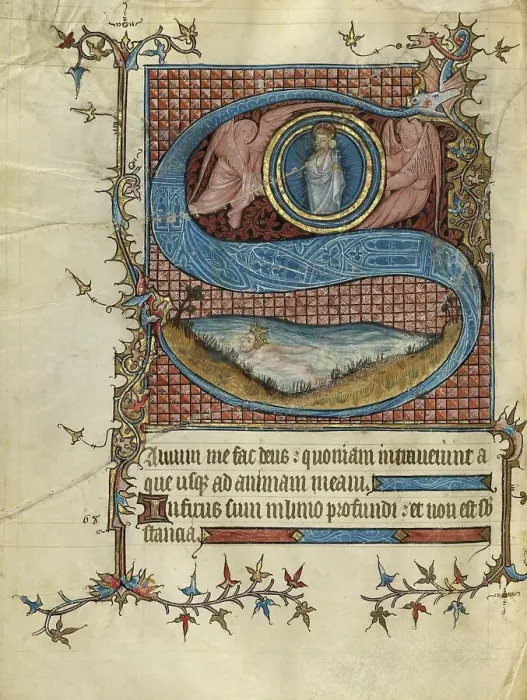 SAluum me fac deus : quoniam intrauerunt a
que usqꝫ ad animam meam.
Infixus sum in limo profundi : et non est sb
stancia.
68